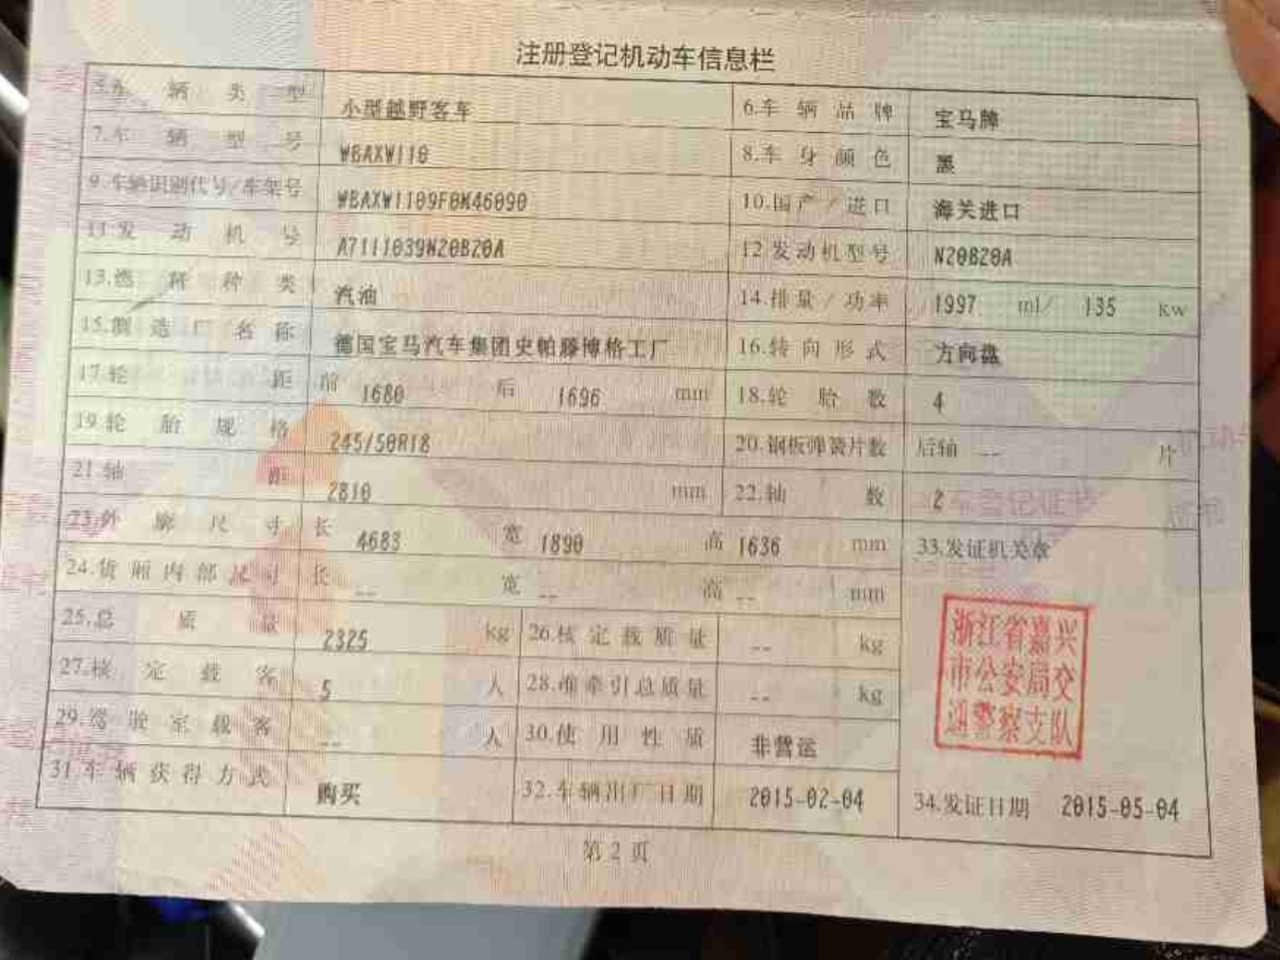 注册登记机动车信息栏
5.车 辆 类 型 小型越野客车 6.车 辆 品 牌 宝马牌
7.车 辆 型 号 WBAXW110 8.车 身 颜 色 黑
9.车辆识别代号/车架号 WBAXW1109F0M46090 10.国产/进口 海关进口
11.发 动 机 号 A7111039N20B20A 12.发动机型号 N20B20A
13.燃 料 种 类 汽油 14.排量/功率 1997 ml/ 135 kw
15.制 造 厂 名 称 德国宝马汽车集团史帕滕博格工厂 16.转向形式 方向盘
17.轮 距 前 1680 后 1696 mm 18.轮 胎 数 4
19.轮 胎 规 格 245/50R18 20.钢板弹簧片数 后轴 -- 片
21.轴 距 2810 mm 22.轴 数 2
23.外 廓 尺 寸 长 4683 宽 1890 高 1636 mm 33.发证机关章
24.货厢内部尺寸 长 -- 宽 -- 高 -- mm
25.总 质 量 2325 kg 26.核定载质量 -- kg
27.核 定 载 客 5 人 28.准牵引总质量 -- kg
29.驾 驶 室 载 客 -- 人 30.使 用 性 质 非营运
31.车辆获得方式 购买 32.车辆出厂日期 2015-02-04 34.发证日期 2015-05-04
浙江省嘉兴
市公安局交
通警察支队
第2页